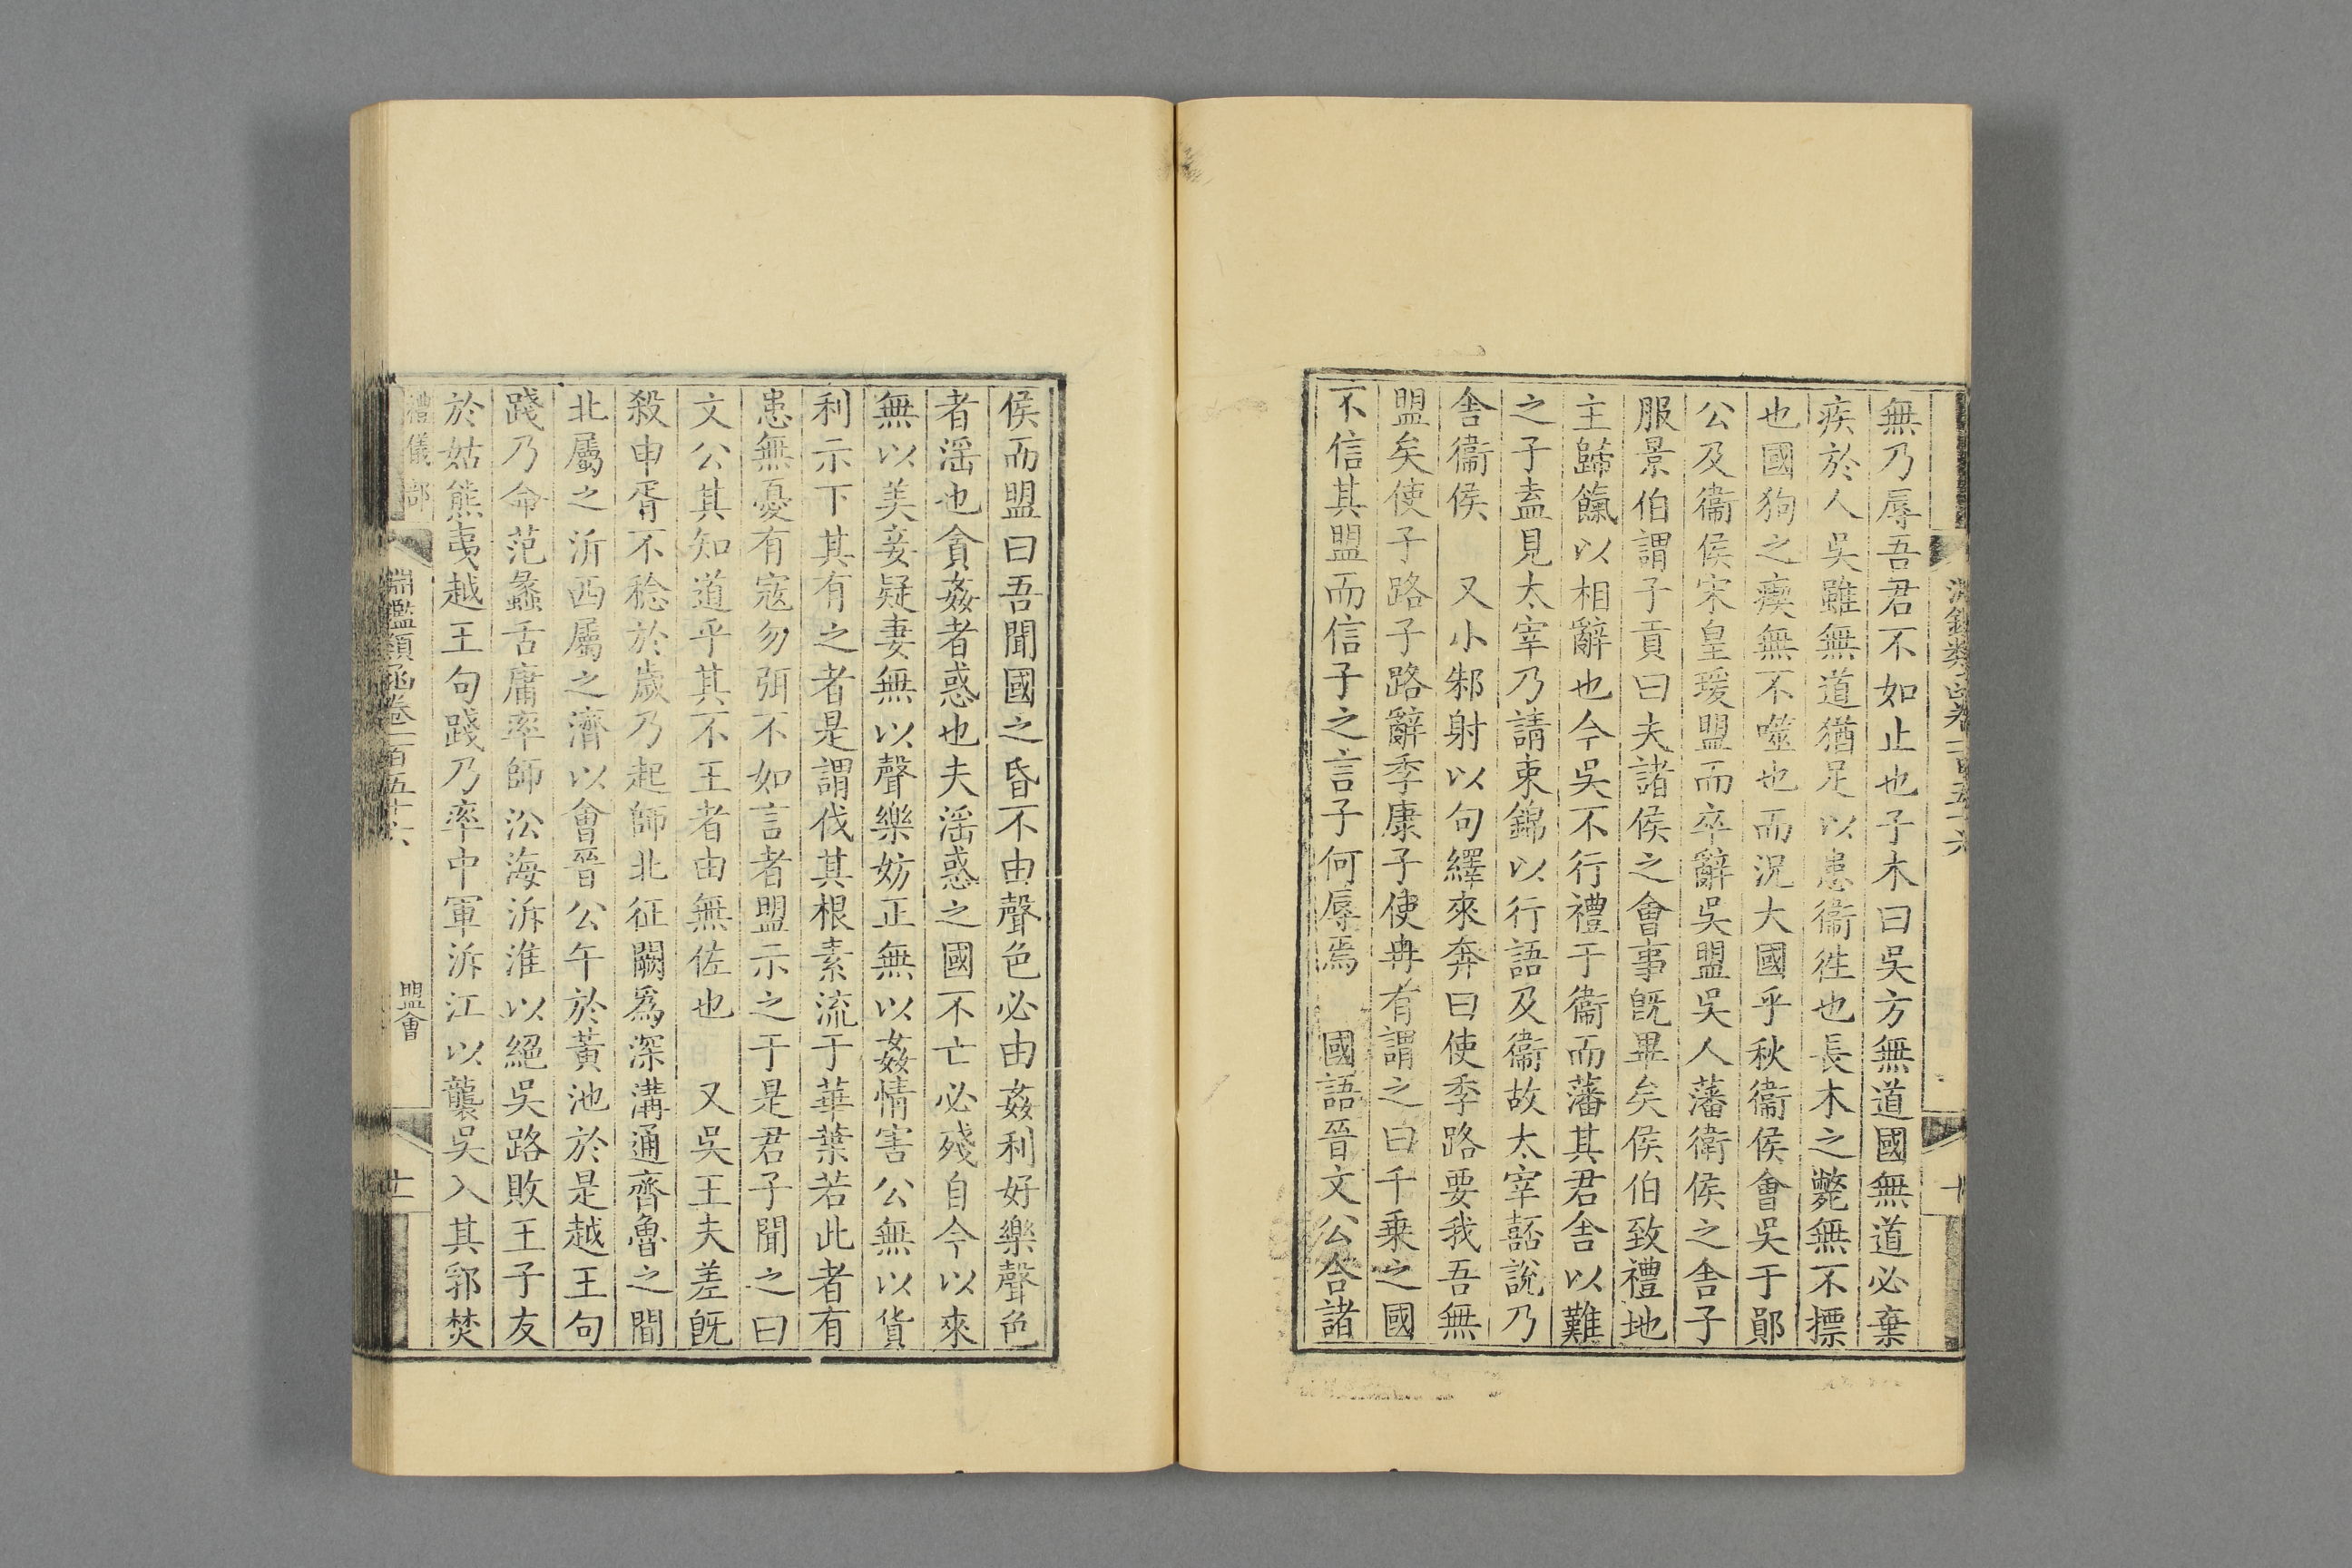 淵鑑類函卷一百五十六
十
無乃辱吾君不如止也子木曰吳方無道國無道必棄
疾於人吳雖無道猶足以患衞徃也長木之斃無不摽
也國狗之瘈無不噬也而況大國乎秋衞侯會吳于鄖
公及衞侯宋皇瑗盟而卒辭吳盟吳人藩衛侯之舍子
服景伯謂子貢曰夫諸侯之會事旣畢矣侯伯致禮地
主歸餼以相辭也今吳不行禮于衞而藩其君舍以難
之子盍見太宰乃請束錦以行語及衞故太宰嚭說乃
舍衞侯 又小邾射以句繹來奔曰使季路要我吾無
盟矣使子路子路辭季康子使冉有謂之曰千乗之國
不信其盟而信子之言子何辱焉 國語晉文公合諸
侯而盟曰吾聞國之昏不由聲色必由姦利好樂聲色
者滛也貪姦者惑也夫滛惑之國不亡必殘自今以來
無以美妾疑妻無以聲樂妨正無以姦情害公無以貨
利示下其有之者是謂伐其根素流于華葉若此者有
患無憂有寇勿弭不如言者盟示之于是君子聞之曰
文公其知道乎其不王者由無佐也 又吳王夫差旣
殺申胥不稔於歲乃起師北征闕爲深溝通齊魯之間
北屬之沂西屬之濟以會晉公午於黃池於是越王句
踐乃命范蠡舌庸率師沿海泝淮以絕吳路敗王子友
於姑熊夷越王句踐乃率中軍泝江以襲吳入其郛焚
禮儀部
淵鑑類函卷一百五十六
盟會
十一